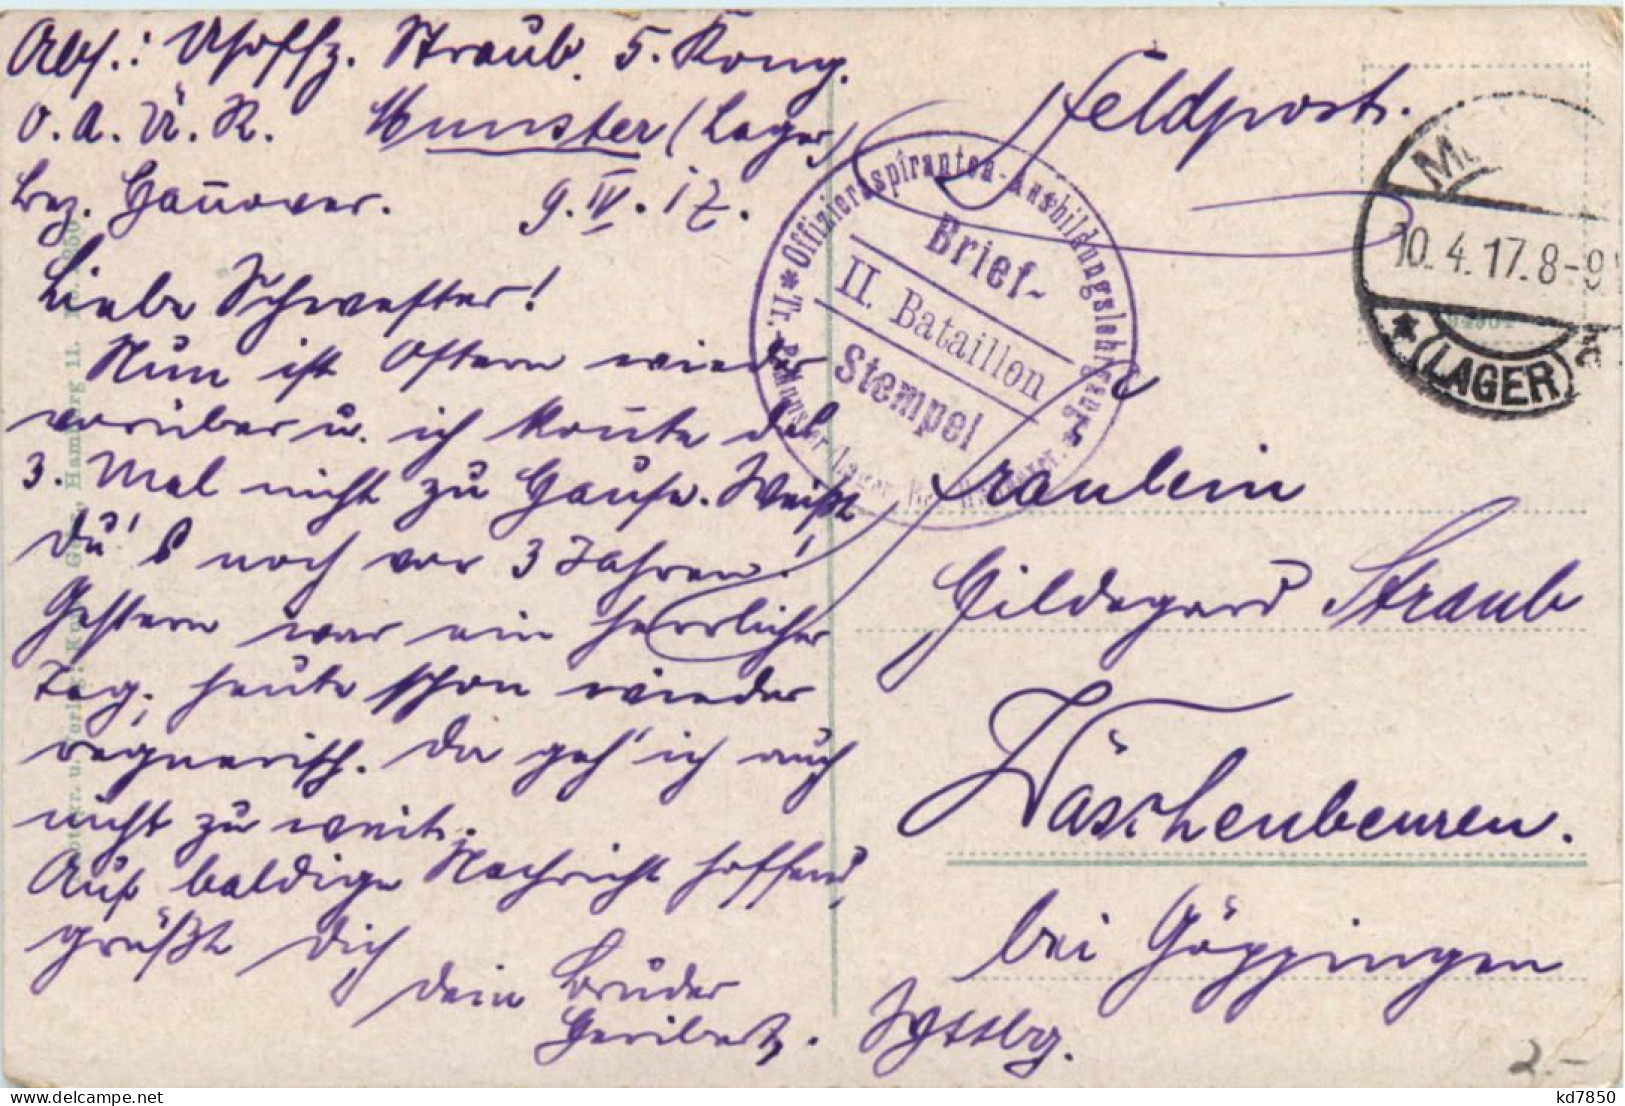 Abs.: Uffz. Straub. 5. Komp.
O. A. Ü. K. Munster (Lager)
Bez. Hannover. 9. IV. 17.
Liebe Schwester!
Nun ist Ostern wieder
vorüber u. ich konnte das
3. Mal nicht zu Hause. Weißt
Du's noch vor 3 Jahren!
Gestern war ein herrlicher
Tag, heute schon wieder
regnerisch. Da geh' ich auch
nicht zu weit.
Auf baldige Nachricht hoffend,
grüßt Dich
dein Bruder
Heribert.
Feldpost.
Fräulein
Hildegard Straub
Wäschenbeuren.
bei Göppingen
Wttbg.
* Offizieraspiranten-Ausbildungslehrgang *
Brief-
II. Bataillon
Stempel
Tr. Munster Lager, Hannover.
10.4.17.8-9
* (LAGER)
Hamburg 11.
2.-
kd7850